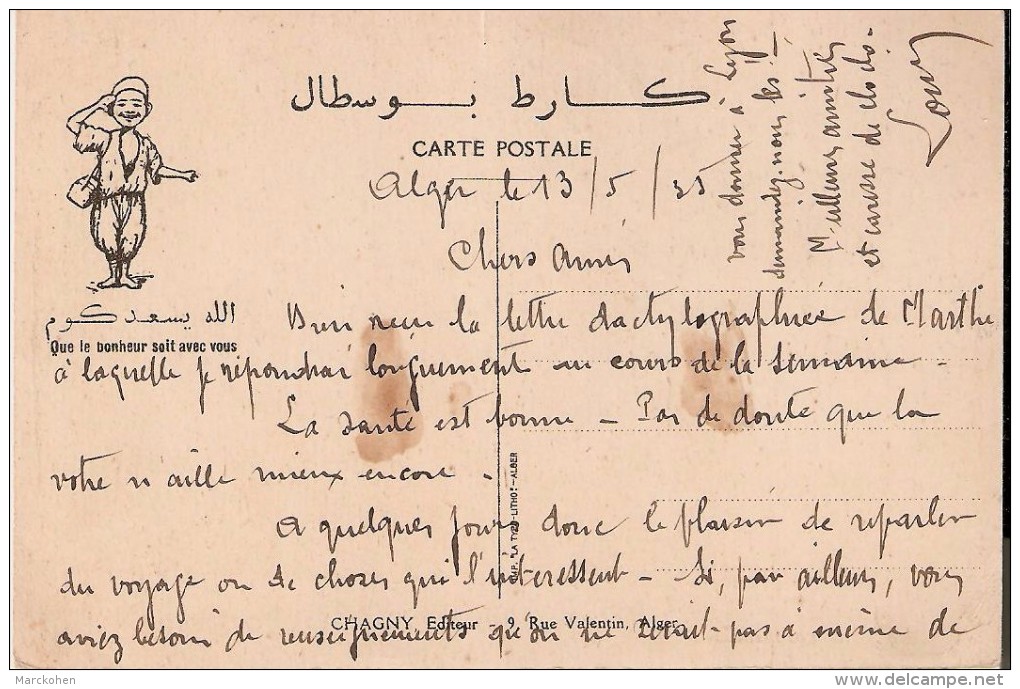 كارط بوسطال
CARTE POSTALE
Alger le 13/5/35
Chers Amis
الله يسعدكوم
Que le bonheur soit avec vous
Bien reçu la lettre dactylographiée de Marthe
à laquelle je répondrai longuement au cours de la semaine -
La santé est bonne - Pas de doute que la
votre n'aille mieux encore.
A quelques jours donc le plaisir de reparler
du voyage ou de choses qui l'intéressent - Si, par ailleurs, vous
aviez besoin de renseignements qu'on ne serait pas à même de
vous donner à Lyon
demandez-nous les -
Meilleures amitiés
et caresse de
IMP. "LA TYPO-LITHO" - ALGER
CHAGNY, Editeur - 9, Rue Valentin, Alger
Marckohen
delcampe.net